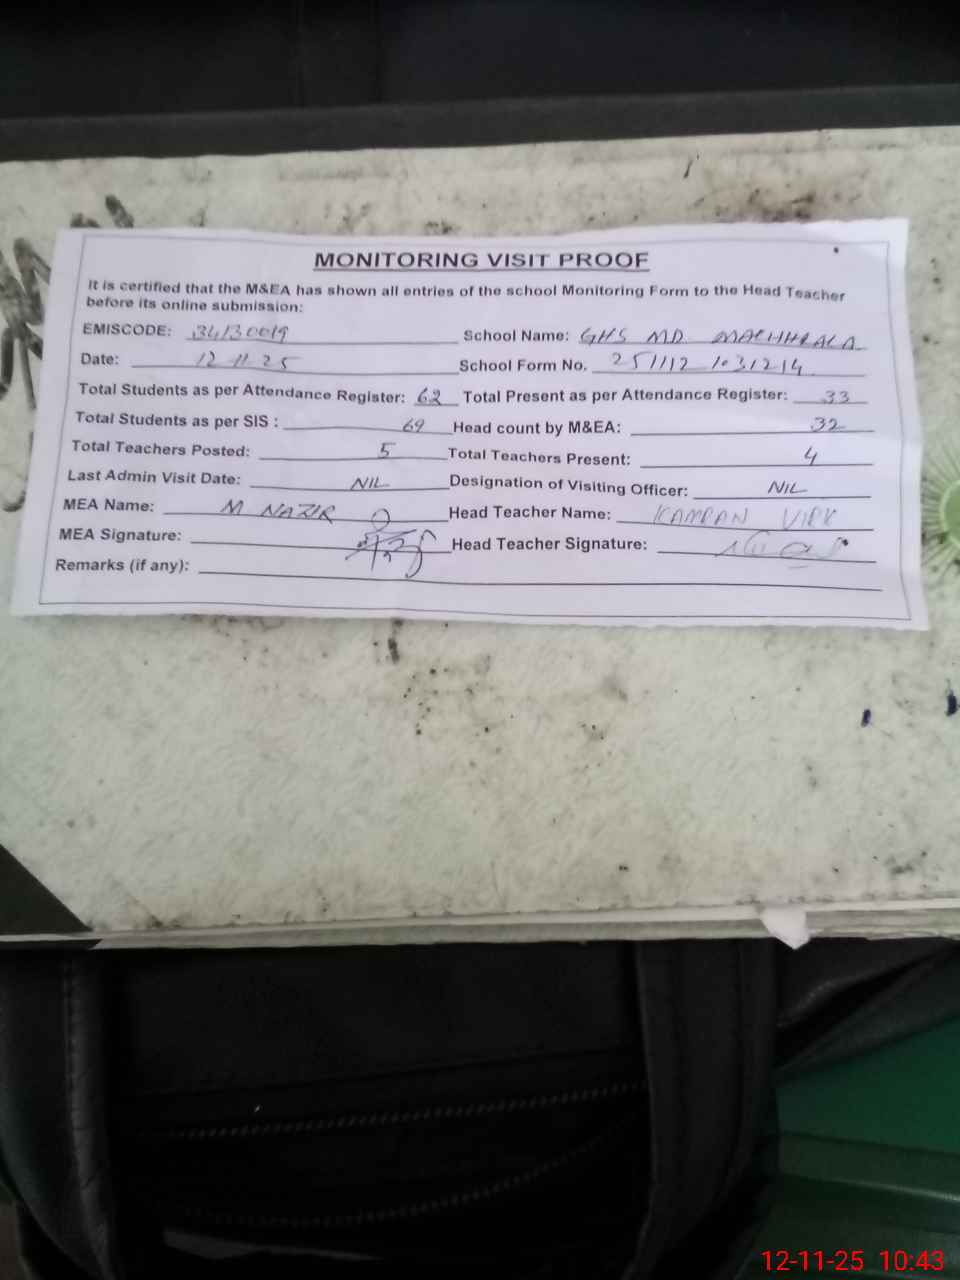 MONITORING VISIT PROOF
It is certified that the M&EA has shown all entries of the school Monitoring Form to the Head Teacher
before its online submission:
EMISCODE: 34130019 School Name: GHS MD MACHHRALA
Date: 12-11-25 School Form No. 251112 1031214
Total Students as per Attendance Register: 62 Total Present as per Attendance Register: 33
Total Students as per SIS : 69 Head count by M&EA: 32
Total Teachers Posted: 5 Total Teachers Present: 4
Last Admin Visit Date: NIL Designation of Visiting Officer: NIL
MEA Name: M NAZIR Head Teacher Name: KAMRAN VIRK
MEA Signature: Head Teacher Signature:
Remarks (if any):
12-11-25 10:43